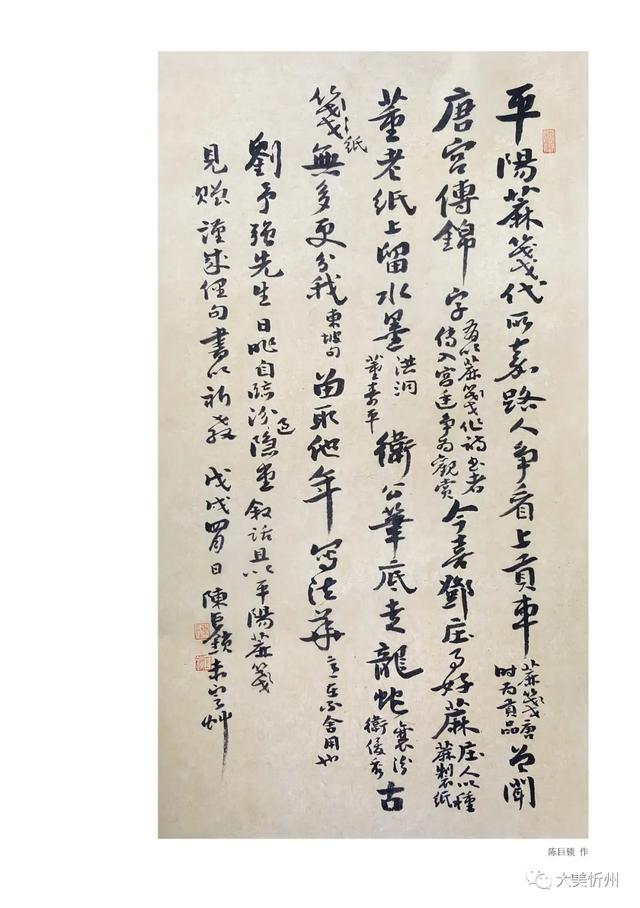 平陽蔴箋代所嘉路人爭看上貢車蔴箋唐时为貢品曾聞
唐宮傳錦字有以蔴箋作詩書者傳入宮廷爭为觀賞今喜鄧庄好蔴庄人以種蔴製紙
董老紙上留水墨洪洞董壽平衛公筆底走龍蛇襄汾衛俊秀古
箋紙無多更分我東坡句留取他年写法華意在不舍用也
劉予強先生日昨自臨汾過隱堂叙話且以平陽蔴箋
見贈謹成俚句書以祈教 戊戌四月日 陳巨鎖未定艸
陈巨锁 作
大美忻州